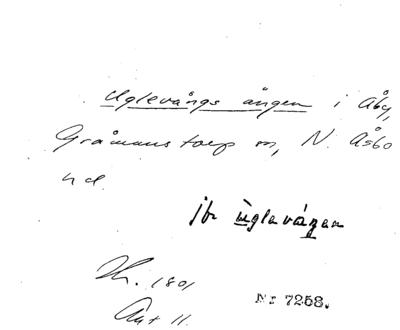 Uglevångs ängen i Åby,
Gråmanstorp sn, N. Åsbo
hd.
jfr Uglavången
Hr. 1801
Akt 11.
Nr 7258.